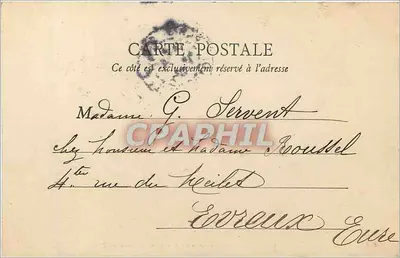 CARTE POSTALE
Ce côté est exclusivement réservé à l'adresse
Madame G. Servent
CPAPHIL
chez monsieur et madame Roussel
4 te rue du Meilet
Evreux
Eure